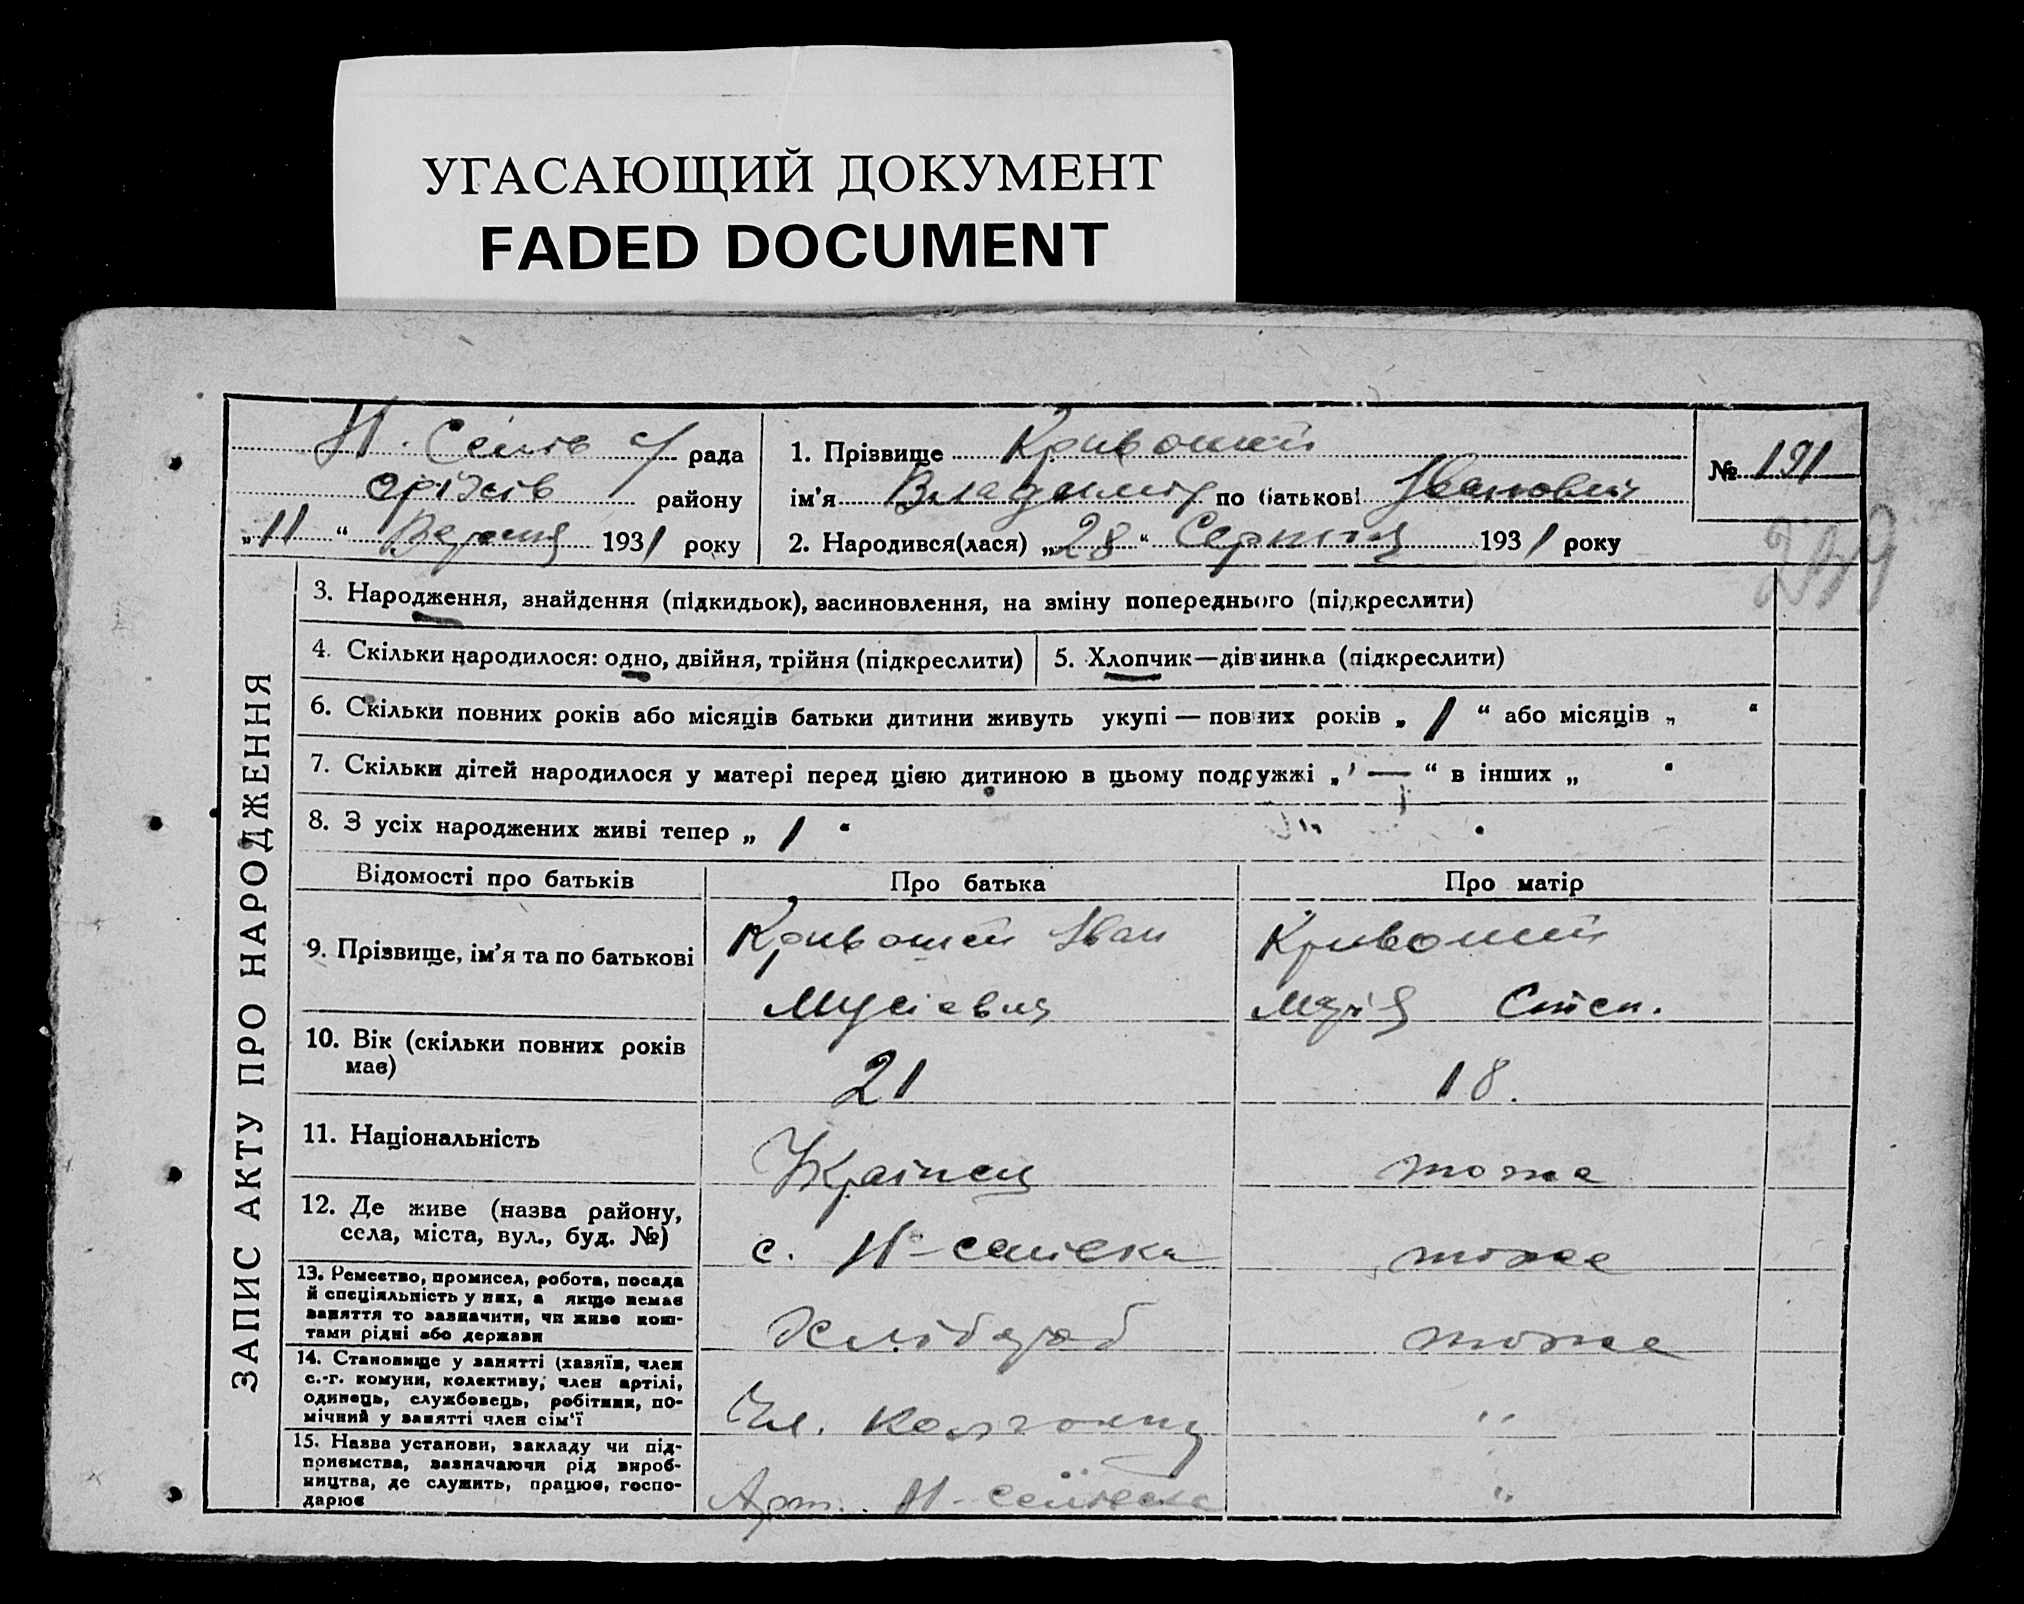 УГАСАЮЩИЙ ДОКУМЕНТ
FADED DOCUMENT
Н. Селів с/рада
Оріхів району
„11“ Вересня 1931 року
1. Прізвище Кривошей
№ 191
ім’я Владимір по батькові Іванович
2. Народився(лася) „28“ Серпня 1931 року
ЗАПИС АКТУ ПРО НАРОДЖЕННЯ
3. Народження, знайдення (підкидьок), засиновлення, на зміну попереднього (підкреслити)
4. Скільки народилося: одно, двійня, трійня (підкреслити)
5. Хлопчик—дівчинка (підкреслити)
6. Скільки повних років або місяців батьки дитини живуть укупі — повних років „1“ або місяців „ “
7. Скільки дітей народилося у матері перед цією дитиною в цьому подружжі „—“ в інших „ “
8. З усіх народжених живі тепер „1“
Відомості про батьків
Про батька
Про матір
9. Прізвище, ім’я та по батькові
Кривошей Іван
Мусієвич
Кривошей
Марія Степ.
10. Вік (скільки повних років
має)
21
18.
11. Національність
Українец
тоже
12. Де живе (назва району,
села, міста, вул., буд. №)
с. Н-селівка
тоже
13. Ремество, промисел, робота, посада
й спеціяльність у них, а якщо немає
заняття то зазначити, чи живе кош-
тами рідні або держави
Хлібороб
тоже
14. Становище у занятті (хазяїн, член
с.-г. комуни, колективу, член артілі,
одинець, службовець, робітник, по-
мічний у занятті член сім’ї
Чл. колгоспу
"
15. Назва установи, закладу чи під-
приємства, зазначаючи рід вироб-
ництва, де служить, працює, госпо-
дарює
Арт. Н-селівска
"